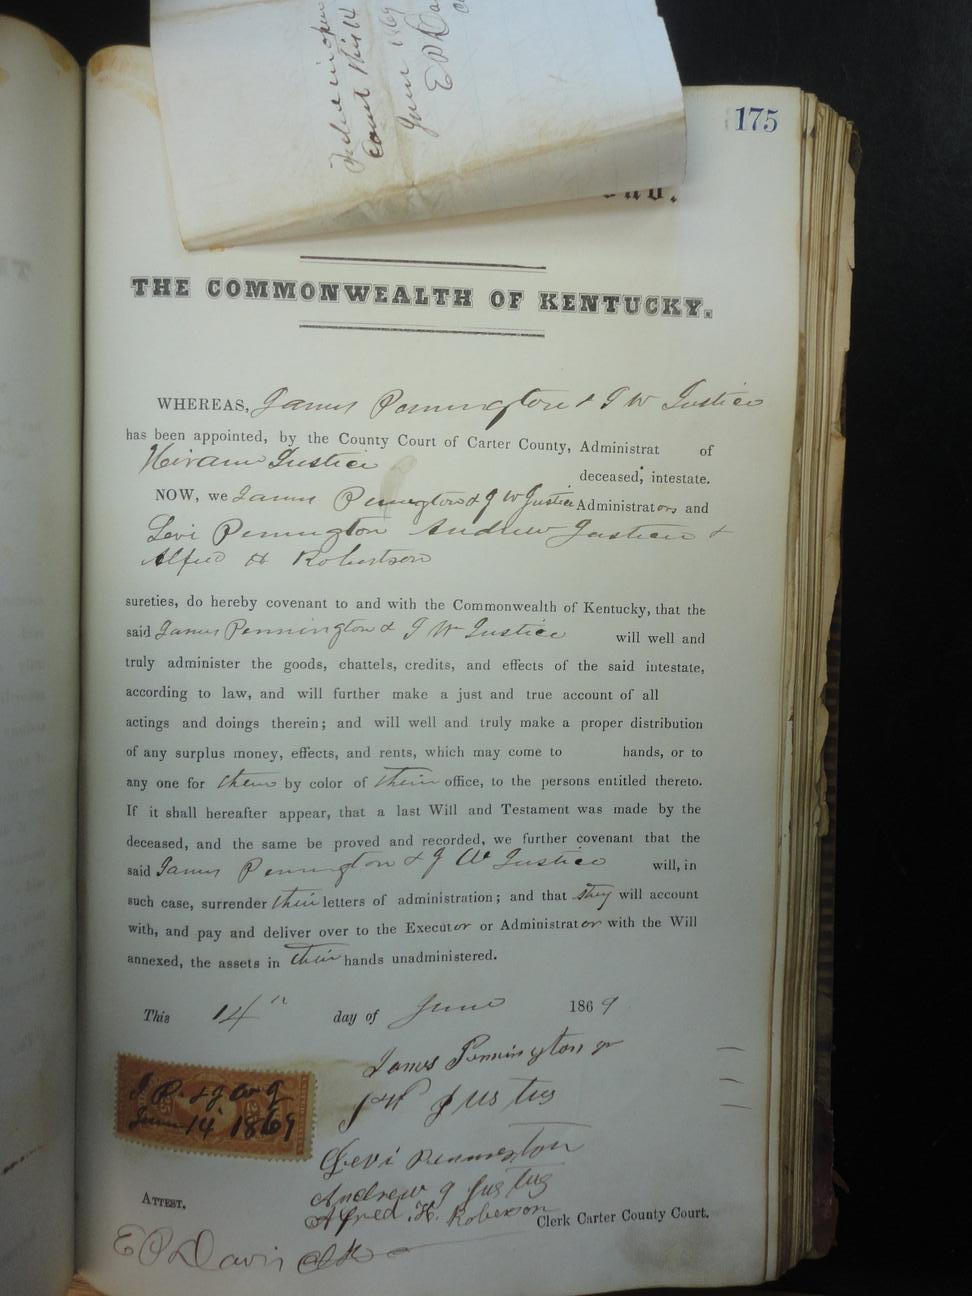 Taken in open
Court this 14
June 1869
E P Da
175
THE COMMONWEALTH OF KENTUCKY.
WHEREAS, James Pennington & J W Justice
has been appointed, by the County Court of Carter County, Administrat of
Hiram Justice deceased, intestate.
NOW, we James Pennington & J W Justice Administrators and
Levi Pennington Andrew Justice &
Alfred H Robertson
sureties, do hereby covenant to and with the Commonwealth of Kentucky, that the
said James Pennington & J W Justice will well and
truly administer the goods, chattels, credits, and effects of the said intestate,
according to law, and will further make a just and true account of all
actings and doings therein; and will well and truly make a proper distribution
of any surplus money, effects, and rents, which may come to hands, or to
any one for them by color of their office, to the persons entitled thereto.
If it shall hereafter appear, that a last Will and Testament was made by the
deceased, and the same be proved and recorded, we further covenant that the
said James Pennington & J W Justice will, in
such case, surrender their letters of administration; and that they will account
with, and pay and deliver over to the Executor or Administrator with the Will
annexed, the assets in their hands unadministered.
This 14th day of June 1869
James Pennington jr
J W Justus
J P. & J W J
June 14 1869
Levi Pennington
Andrew J Justus
ATTEST,
Alfred H. Roberson
Clerk Carter County Court.
E P Davis Clk